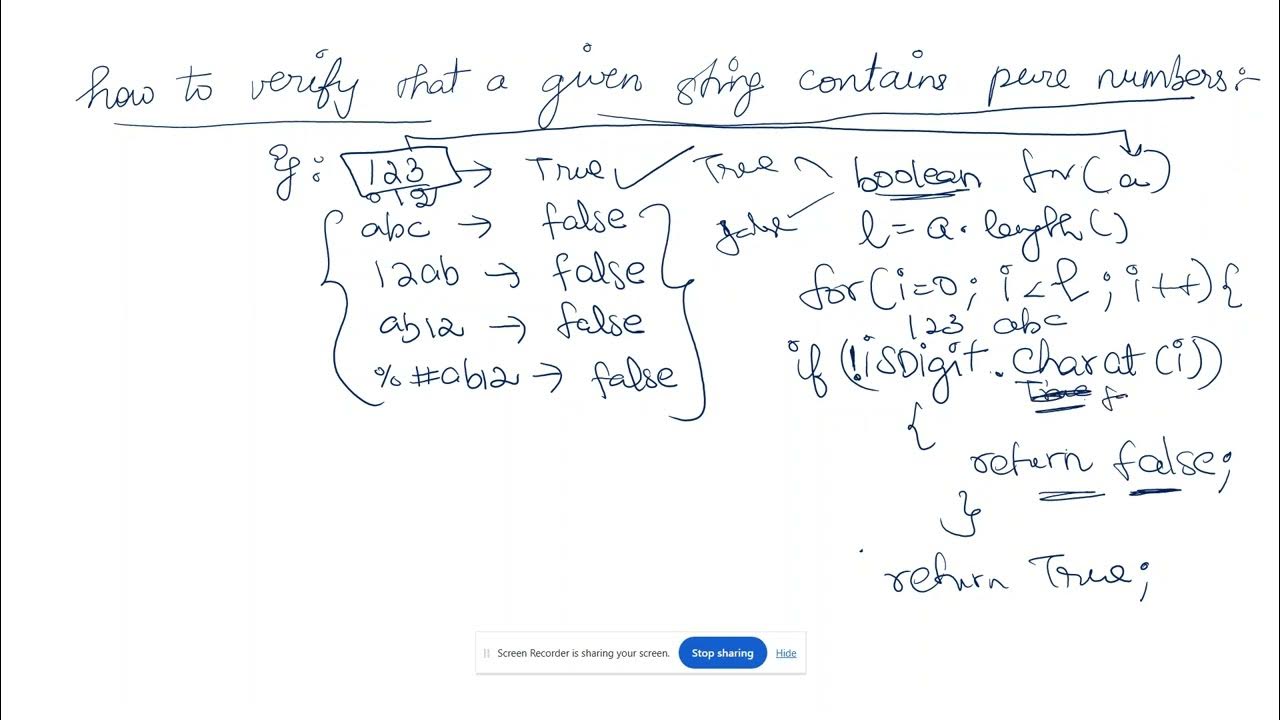 how to verify that a given string contains pure numbers:-
Eg: 123 → True ✓
012
abc → false
12ab → false
ab12 → false
%#ab12 → false
True
false
boolean for(a)
l = a.length()
for(i=0; i<l; i++){
123 abc
if (!isDigit.charat(i))
True f
{
return false;
}
return True;
Screen Recorder is sharing your screen. Stop sharing Hide